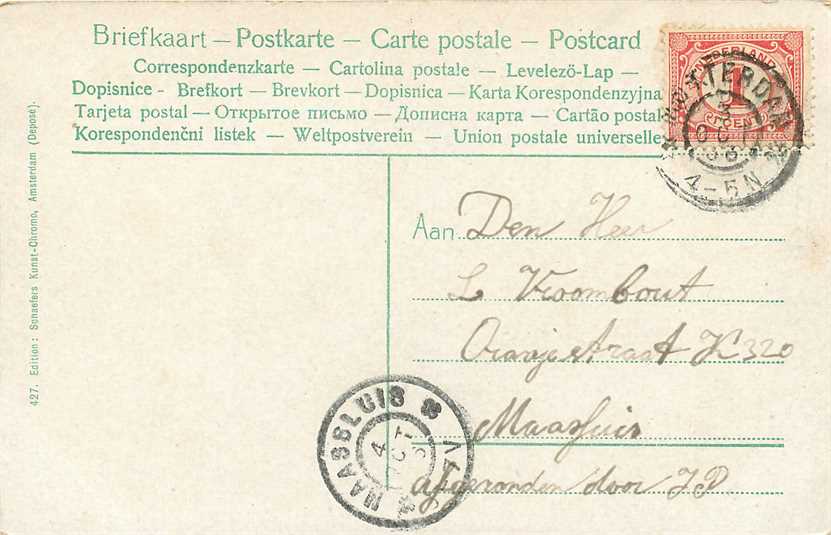 Briefkaart — Postkarte — Carte postale — Postcard
Correspondenzkarte — Cartolina postale — Levelező-Lap —
Dopisnice - Brefkort — Brevkort — Dopisnica — Karta Korespondenzyjna
Tarjeta postal — Открытое письмо — Дописна карта — Cartão postal
Korespondenční listek — Weltpostverein — Union postale universelle
NEDERLAND
1
CENT
ROTTERDAM
4-5N
Aan Den Heer
L Vroombout
Oranjestraat K 320
Maassluis
afgezonden door J P
MAASSLUIS
4 OCT
427. Edition: Schaefers Kunst-Chromo, Amsterdam (Deposé).